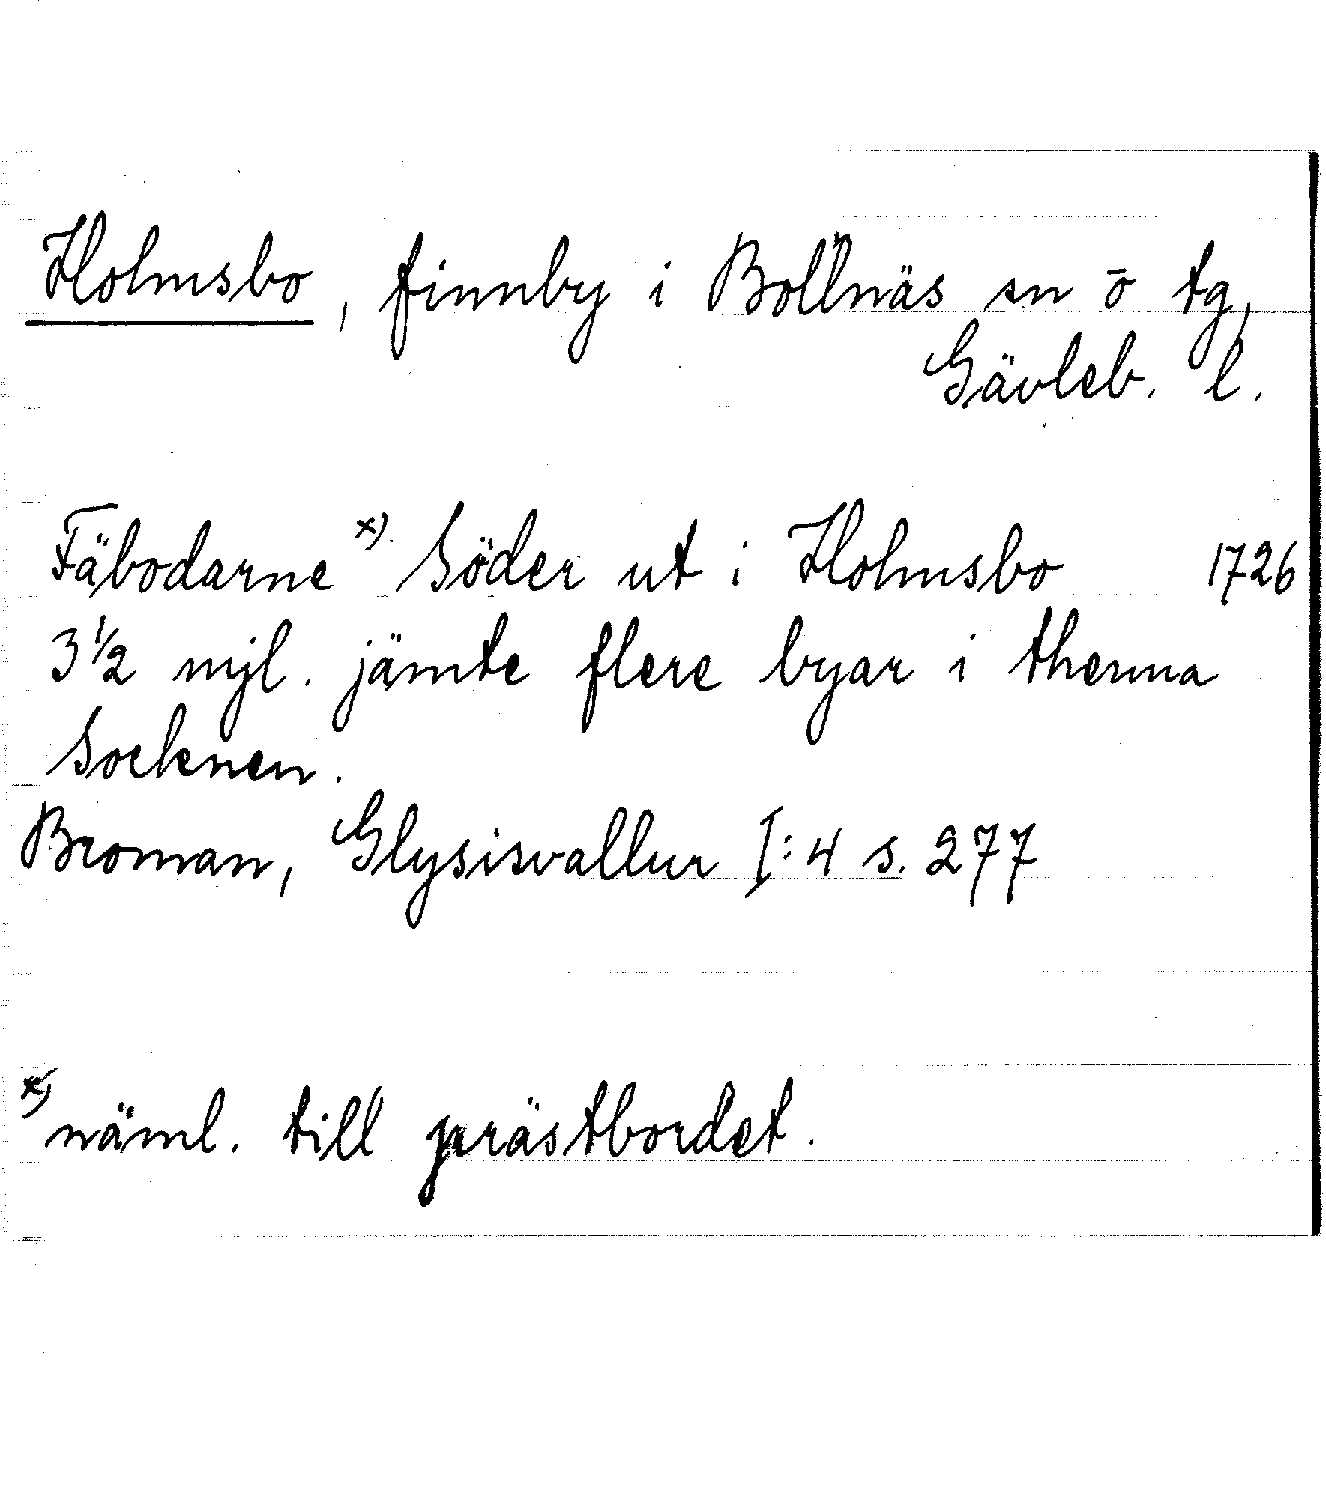 Holmsbo, finnby i Bollnäs sn ō tg,
Gävleb. l.
Fäbodarne x) Söder ut i Holmsbo 1726
3 1/2 mjl. jämte flere byar i thenna
Socknen.
Broman, Glysisvallur I:4 s. 277
x) näml. till prästbordet.